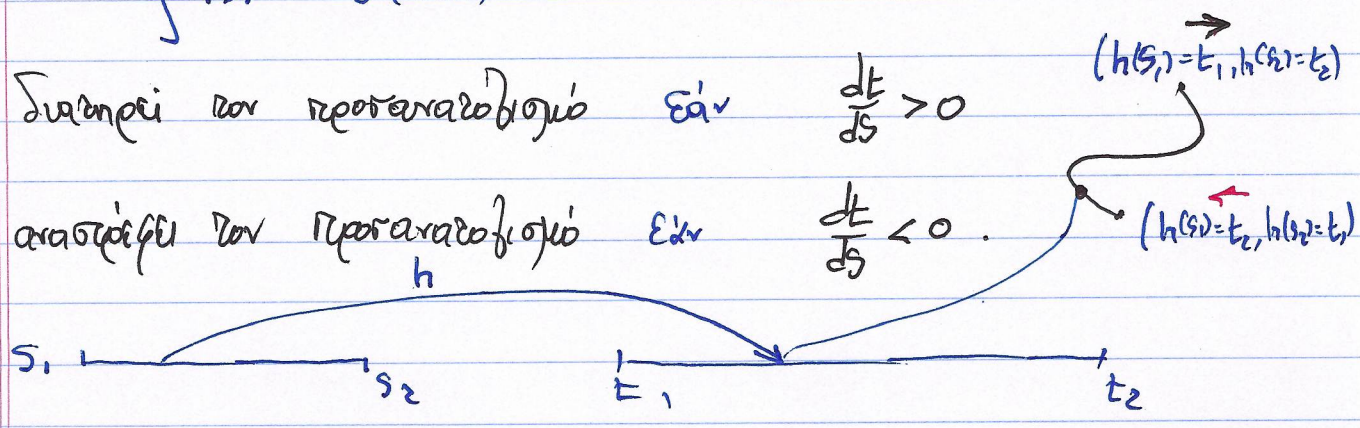 (h(s₁)=t₁, h(s₂)=t₂)
διατηρεί τον προσανατολισμό εάν dt/ds > 0
αναστρέφει τον προσανατολισμό εάν dt/ds < 0 .
(h(s₁)=t₂, h(s₂)=t₁)
h
s₁ s₂ t₁ t₂